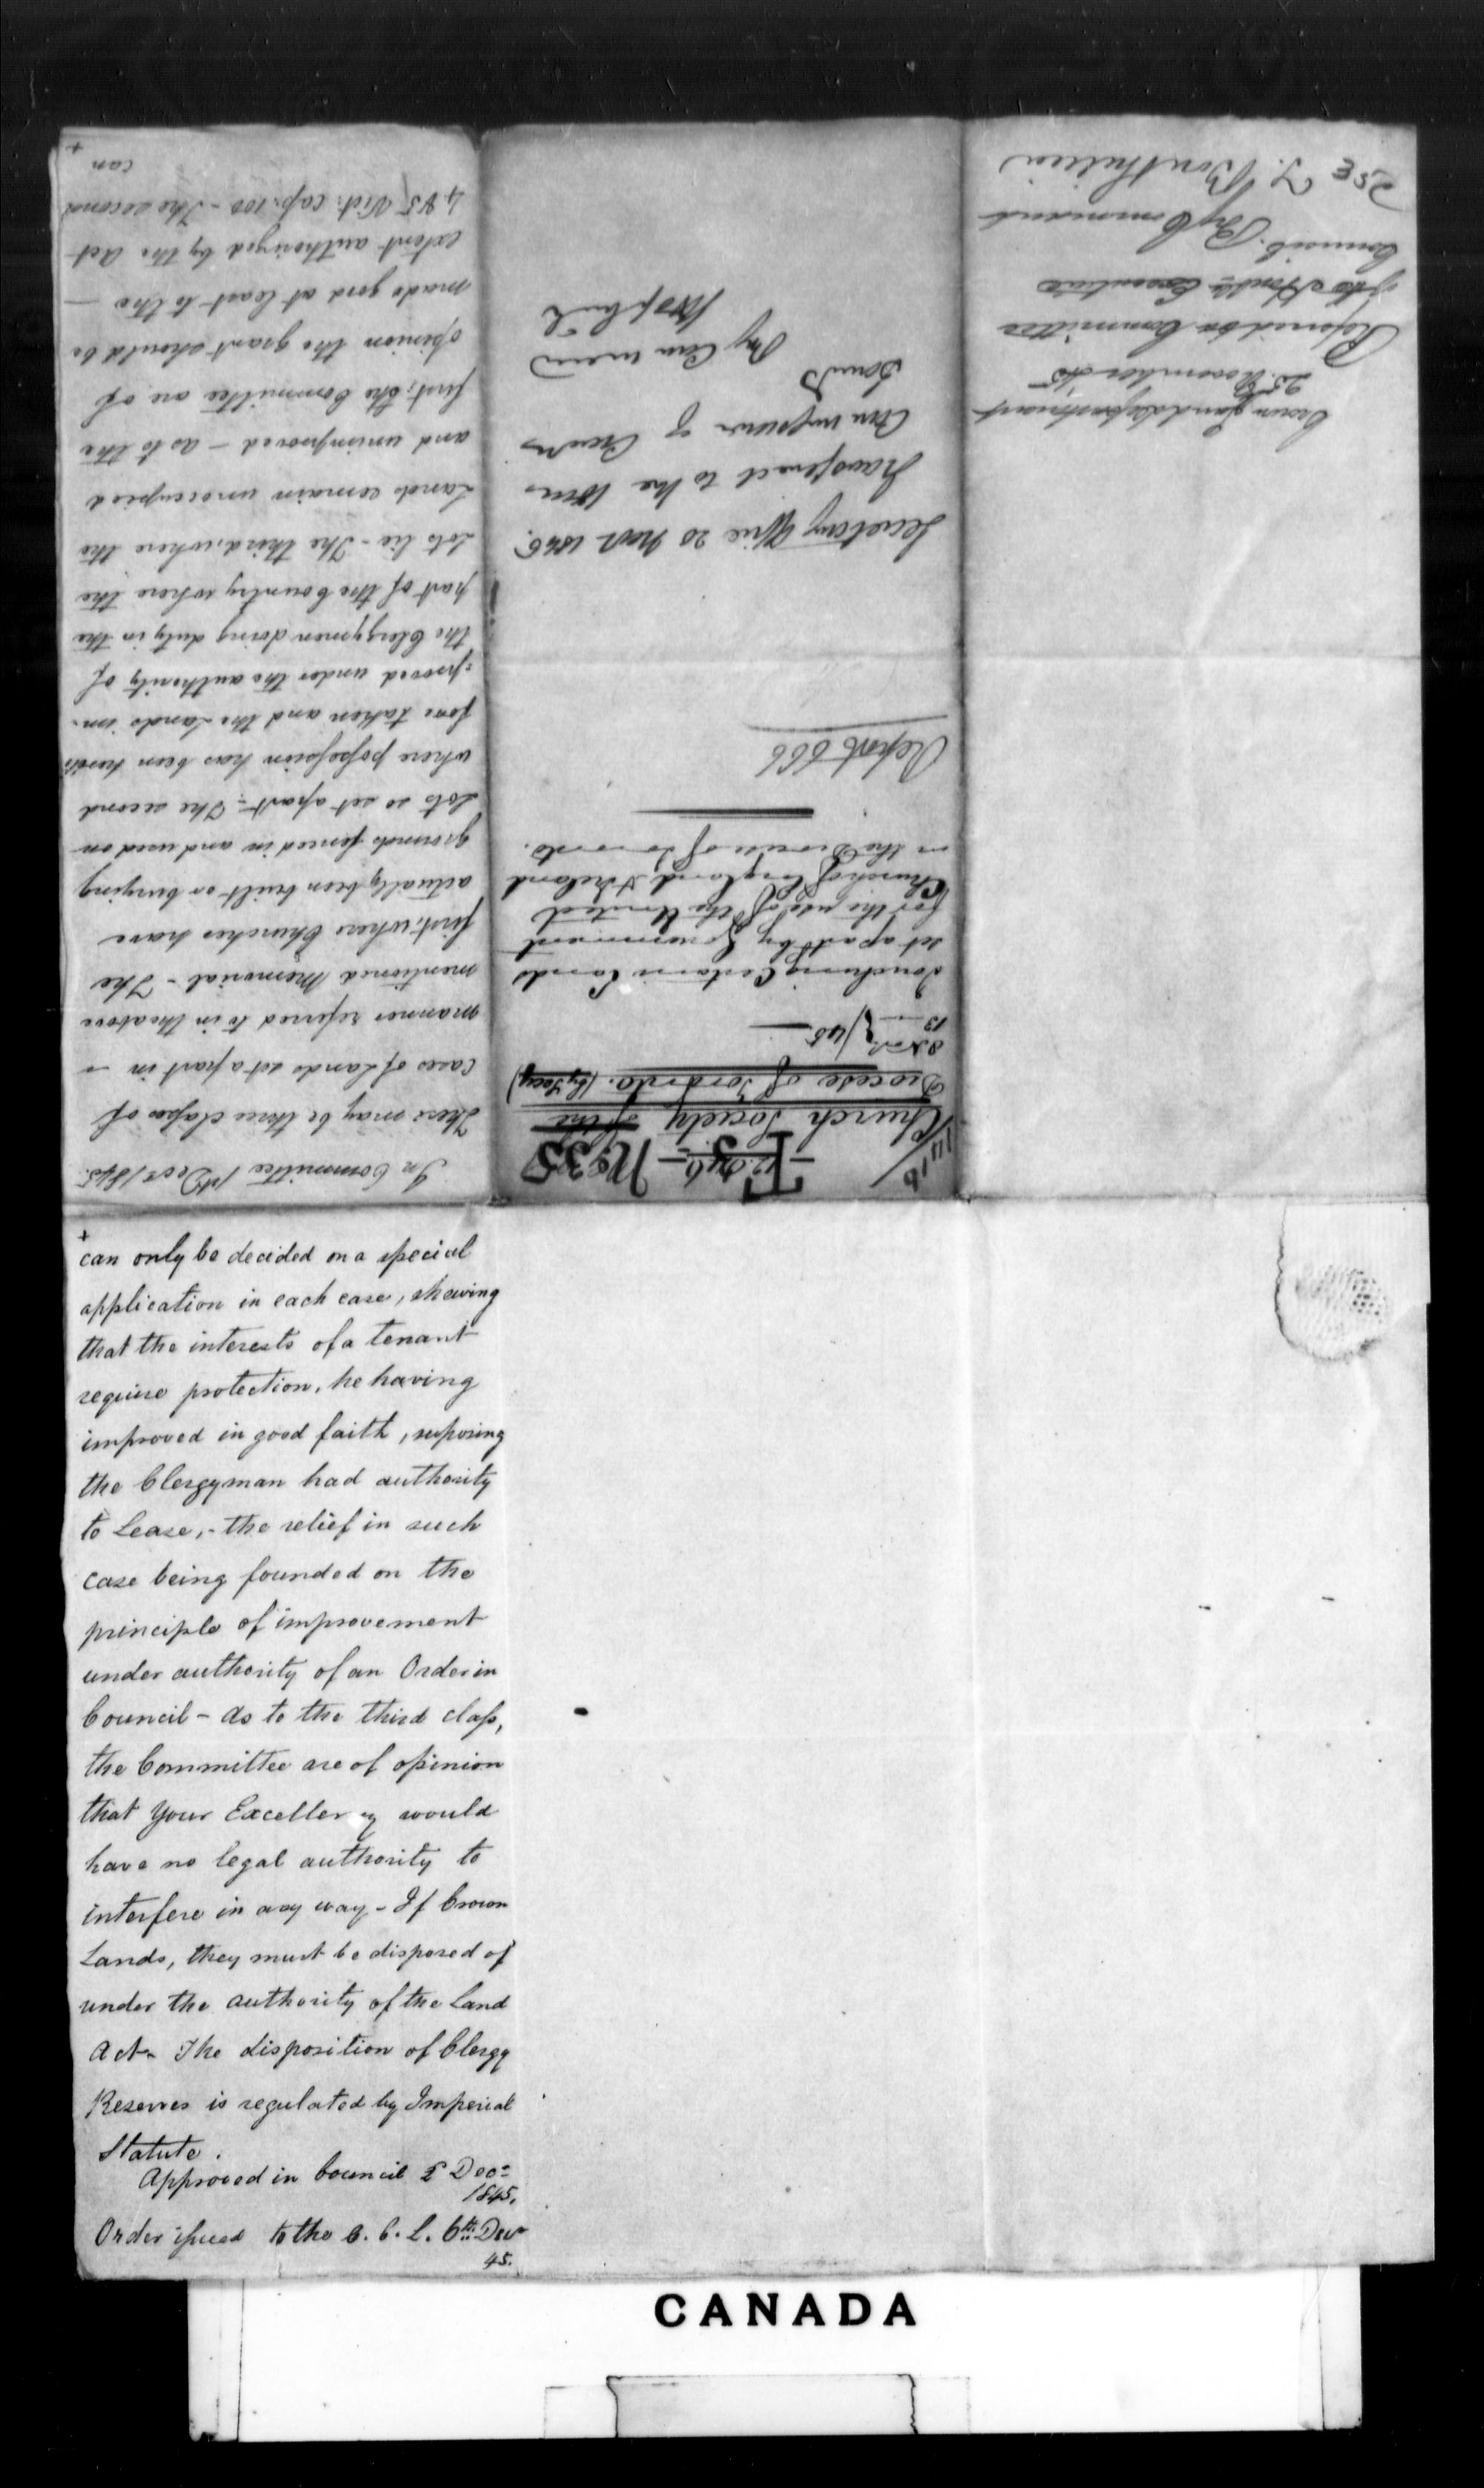 1416
T
12. Dyb.
No 35
Church Society of the
Diocese of Toronto. (by Secy)
8 Nov. } /45
13
Touching Certain Lands
set apart by Government
for the use of the United
Church of England & Ireland
in the Diocese of Toronto.
Report 666
Secretary Office 20 Nov 1845.
Transferred to the Hon
Commissioner of Crown
Lands
By Command
Crown Land Department
25 November 45
Referred to Committee
of the Honble Executive
Council. By Command
T. Bouthillier
In Committee 1st Decr 1845.
There may be three classes of
cases of Lands set apart in
manner referred to in the above
mentioned Memorial - The
first, where Churches have
actually been built or burying
grounds fenced in and used on
Lots so set apart - The second
where possession has been hereto
fore taken and the Lands im-
proved under the authority of
the Clergymen doing duty in the
part of the Country where the
Lots lie - The third, where the
Lands remain unoccupied
and unimproved - as to the
first, the Committee are of
opinion the grant should be
made good at least to the
extent authorized by the Act
4 & 5 Vict: cap: 100 - The second
can
+
+
can only be decided on a special
application in each case, shewing
that the interests of a tenant
require protection, he having
improved in good faith, suposing
the Clergyman had authority
to Lease, - the relief in such
case being founded on the
principle of improvement
under authority of an Order in
Council - As to the third class,
the Committee are of opinion
that Your Excellency would
have no legal authority to
interfere in any way - If Crown
Lands, they must be disposed of
under the authority of the Land
Act - The disposition of Clergy
Reserves is regulated by Imperial
Statute.
Approved in Council 2d Decr
1845.
Order issued to the C. C. L. 6th Decr
45.
CANADA